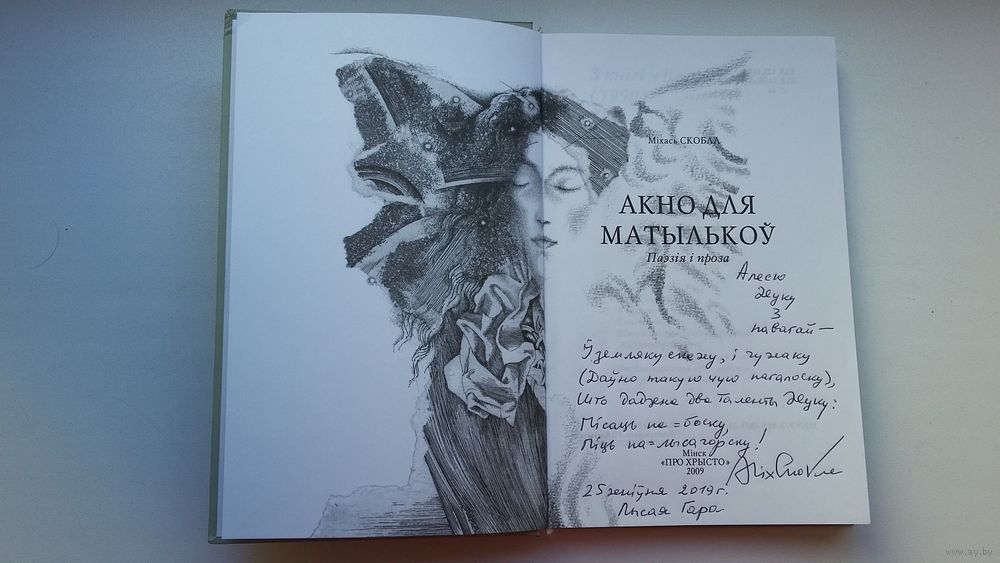 Міхась СКОБЛА
АКНО ДЛЯ
МАТЫЛЬКОЎ
Паэзія і проза
Алесю
Жуку
З
павагай —
Я земляку скажу, і чужаку
(Даўно такую чую пагалоску),
Што дадзена два таленты Жуку:
Пісаць па=боску,
Піць па=лысагорску!
Мінск
«ПРО ХРЫСТО»
2009
25 жніўня 2019 г.
Лысая Гара
www.ay.by